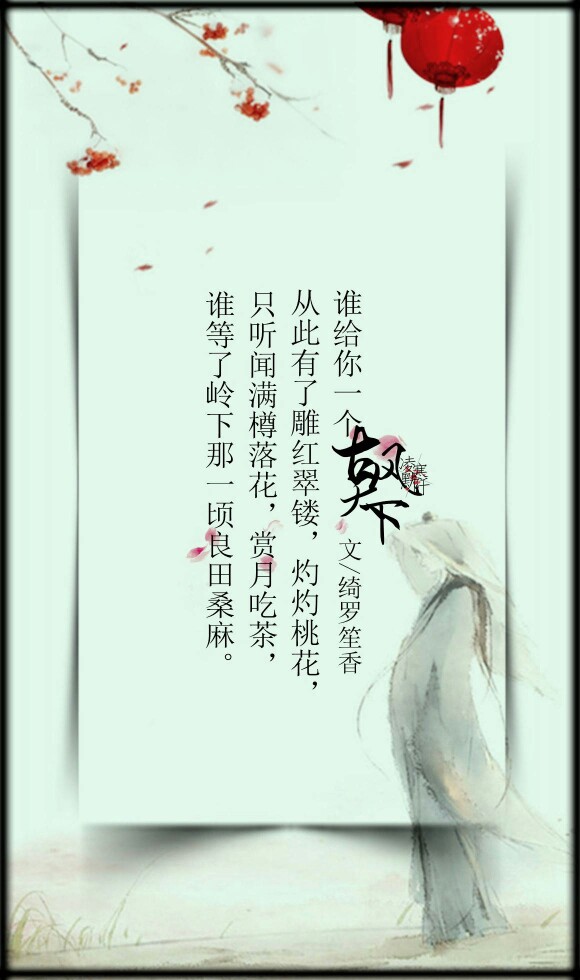 谁给你一个
天下
文/绮罗笙香
从此有了雕红翠镂，灼灼桃花，
只听闻满樽落花，赏月吃茶，
谁等了岭下那一顷良田桑麻。